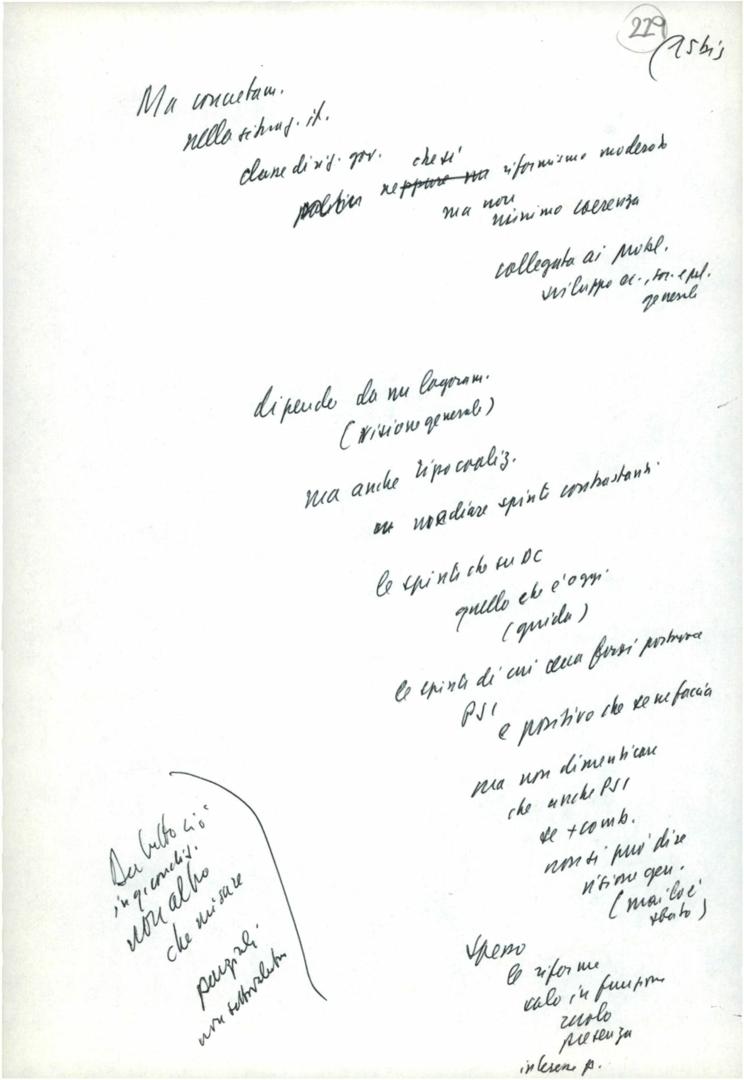 229
(15bis
Ma concretam.
nella situaz. it.
classe dirig. gov.
politica ne ppure un che si riformismo moderato
ma non
minimo coerenza
collegata ai probl.
sviluppo ec., soc. e pol.
generale
dipende da
(visione generale)
ma anche tipo coaliz.
spinte contrastanti
le spinte che su DC
quello che è oggi
(guida)
le spinte di cui
PSI
e positivo che se ne faccia
ma non dimenticare
che anche PSI
se + comb.
non si può dire
visione gen.
(mai lo è
stato)
Spesso
le riforme
solo in funzione
ruolo
presenza
interesse p.
Da tutto ciò
in q. condiz.
non altro
che misure
parziali
non sottovalutare